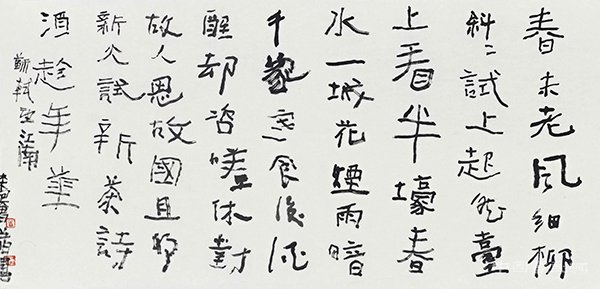 春未老風細柳
斜斜試上超然臺
上看半壕春
水一城花煙雨暗
千家寒食後酒
醒却咨嗟休對
故人思故國且將
新火試新茶詩
酒趁年華
蘇軾望江南